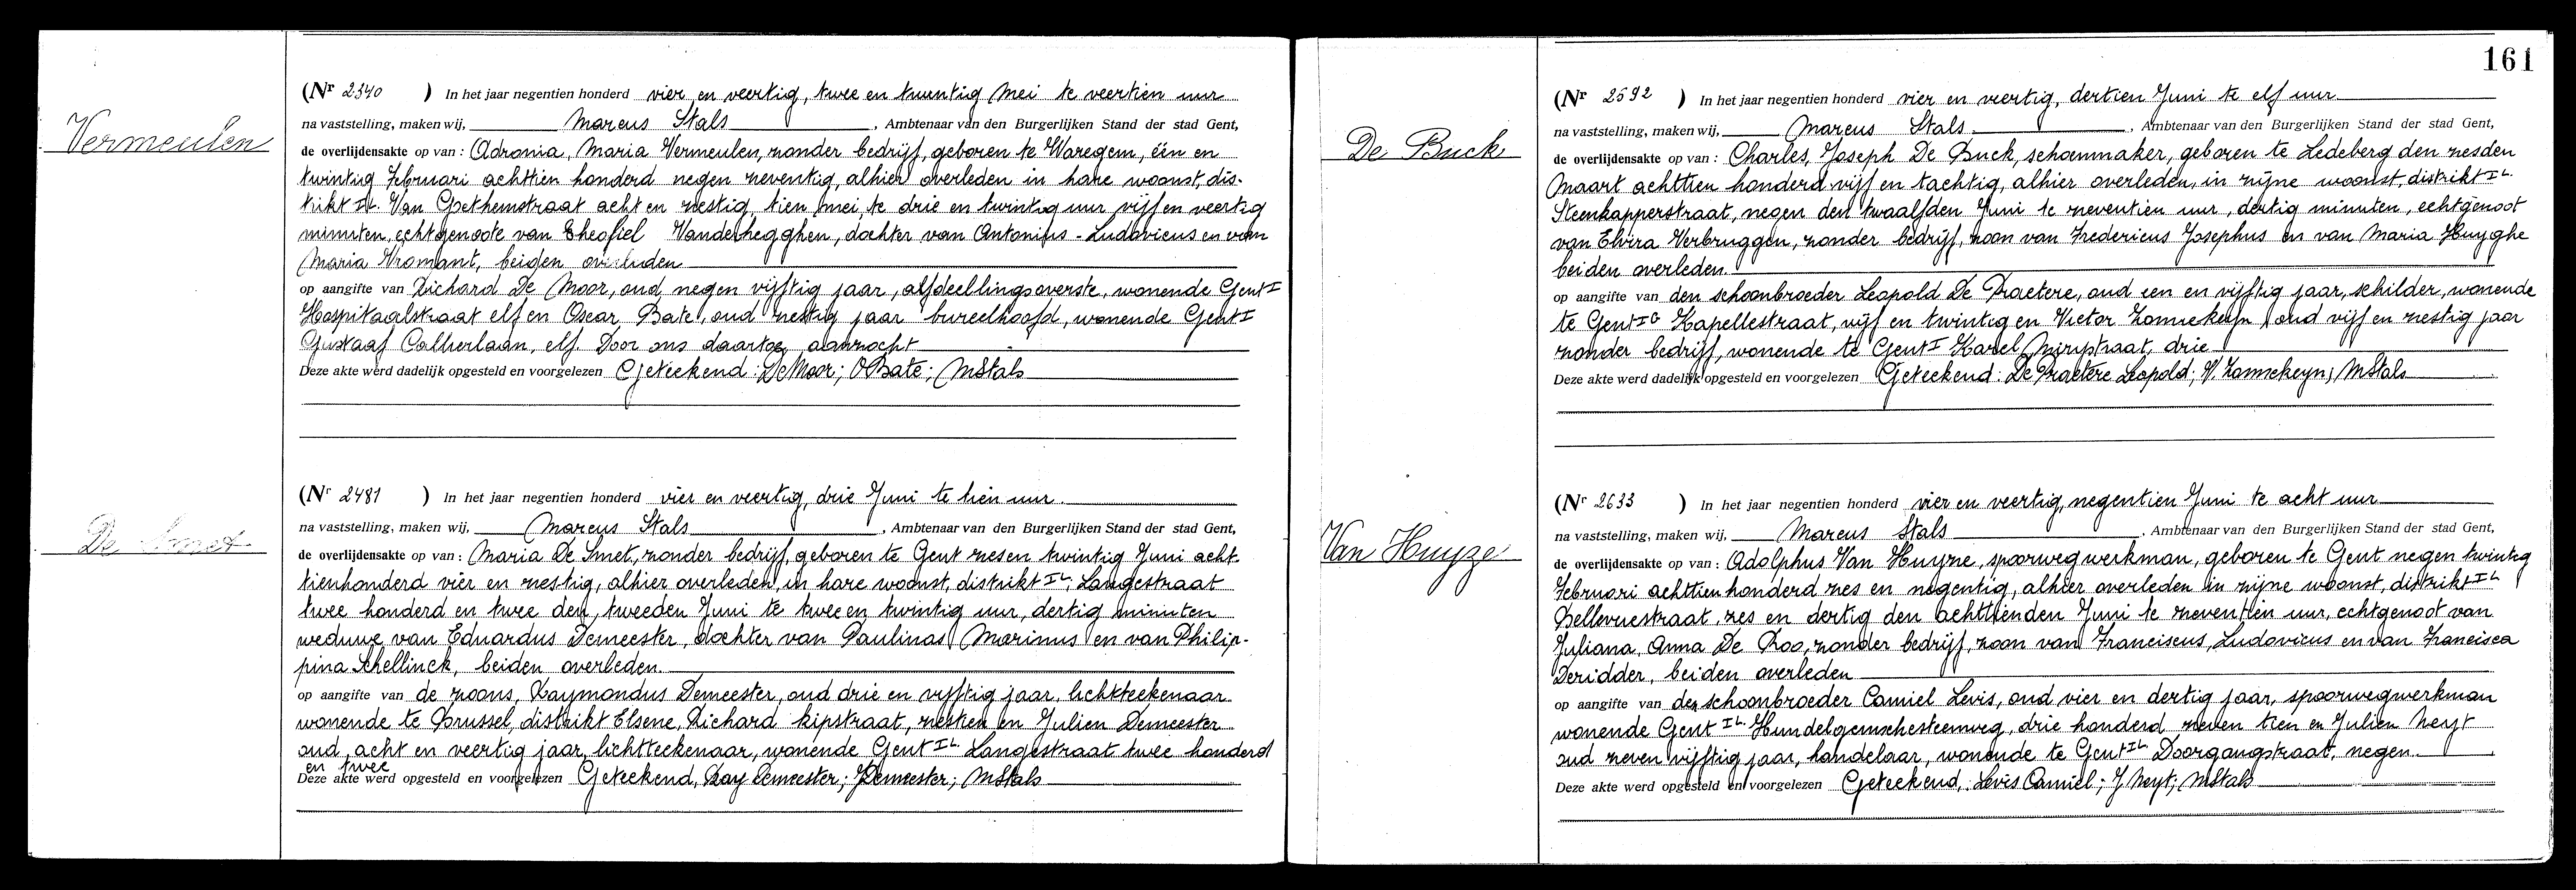 Vermeulen
(Nr 2340 ) In het jaar negentien honderd vier en veertig, twee en twintig Mei te veertien uur
na vaststelling, maken wij, Marcus Stals, Ambtenaar van den Burgerlijken Stand der stad Gent,
de overlijdensakte op van : Adronia, Maria Vermeulen, zonder bedrijf, geboren te Waregem, één en
twintig Februari achttien honderd negen zeventig, alhier overleden in hare woonst, dis-
trikt IL. Van Goethemstraat acht en zestig, tien mei, te drie en twintig uur vijf en veertig
minuten, echtgenoote van Theofiel Vanderhegghen, dochter van Antonius - Ludovicus en van
Maria Vromant, beiden overleden
op aangifte van Richard De Moor, oud negen vijftig jaar, afdeellingsoverste, wonende Gent I
Hospitaalstraat elf en Oscar Bate, oud zestig jaar bureelhoofd, wonende Gent I
Gustaaf Callierlaan, elf. Door ons daartoe aanzocht
Deze akte werd dadelijk opgesteld en voorgelezen Geteekend : De Moor; O Bate; MStals
De Smet
(Nr 2481 ) In het jaar negentien honderd vier en veertig, drie Juni te tien uur.
na vaststelling, maken wij, Marcus Stals, Ambtenaar van den Burgerlijken Stand der stad Gent,
de overlijdensakte op van : Maria De Smet, zonder bedrijf, geboren te Gent zes en twintig Juni acht-
tienhonderd vier en zestig, alhier overleden, in hare woonst, distrikt IL, Langestraat
twee honderd en twee den, tweeden Juni te twee en twintig uur, dertig minuten
weduwe van Eduardus Demeester, dochter van Paulinas Marinus en van Philip-
pina Schellinck, beiden overleden.
op aangifte van de zoons, Raymondus Demeester, oud drie en vijftig jaar, lichtteekenaar
wonende te Brussel, distrikt Elsene, Richard kipstraat, zestien en Julien Demeester
oud acht en veertig jaar, lichtteekenaar, wonende Gent IL Langestraat twee honderd
en twee
Deze akte werd opgesteld en voorgelezen Geteekend, Ray Demeester; JDemeester; MStals
161
De Buck
(Nr 2592 ) In het jaar negentien honderd vier en veertig, dertien Juni te elf uur
na vaststelling, maken wij, Marcus Stals, Ambtenaar van den Burgerlijken Stand der stad Gent,
de overlijdensakte op van : Charles, Joseph De Buck, schoenmaker, geboren te Ledeberg den zesden
Maart achttien honderd vijf en tachtig, alhier overleden, in zijne woonst, distrikt IL.
Steenkapperstraat, negen den twaalfden Juni te zeventien uur, dertig minuten, echtgenoot
van Elvira Verbruggen, zonder bedrijf, zoon van Fredericus Josephus en van Maria Huyghe
beiden overleden.
op aangifte van den schoonbroeder Leopold De Praetere, oud een en vijftig jaar, schilder, wonende
te Gent IG Kapellestraat, vijf en twintig en Victor Zonnekeyn, oud vijf en zestig jaar
zonder bedrijf, wonende te Gent I Karel Mirystraat, drie
Deze akte werd dadelijk opgesteld en voorgelezen Geteekend : De Praetere Leopold; V. Zonnekeyn; MStals
Van Huyze
(Nr 2633 ) In het jaar negentien honderd vier en veertig, negentien Juni te acht uur
na vaststelling, maken wij, Marcus Stals, Ambtenaar van den Burgerlijken Stand der stad Gent,
de overlijdensakte op van : Adolphus Van Huyze, spoorwegwerkman, geboren te Gent negen twintig
Februari achttien honderd zes en negentig, alhier overleden in zijne woonst, distrikt IL
Bellevuestraat, zes en dertig den achttienden Juni te zeventien uur, echtgenoot van
Juliana, Anna De Roo, zonder bedrijf, zoon van Franciscus, Ludovicus en van Francisca
Deridder, beiden overleden
op aangifte van den schoonbroeder Camiel Levis, oud vier en dertig jaar, spoorwegwerkman
wonende Gent IL. Hundelgemschesteenweg, drie honderd zeven tien en Julien Neyt
oud zeven vijftig jaar, handelaar, wonende te Gent IL Doorgangstraat, negen.
Deze akte werd opgesteld en voorgelezen Geteekend, : Levis Camiel; J Neyt; MStals